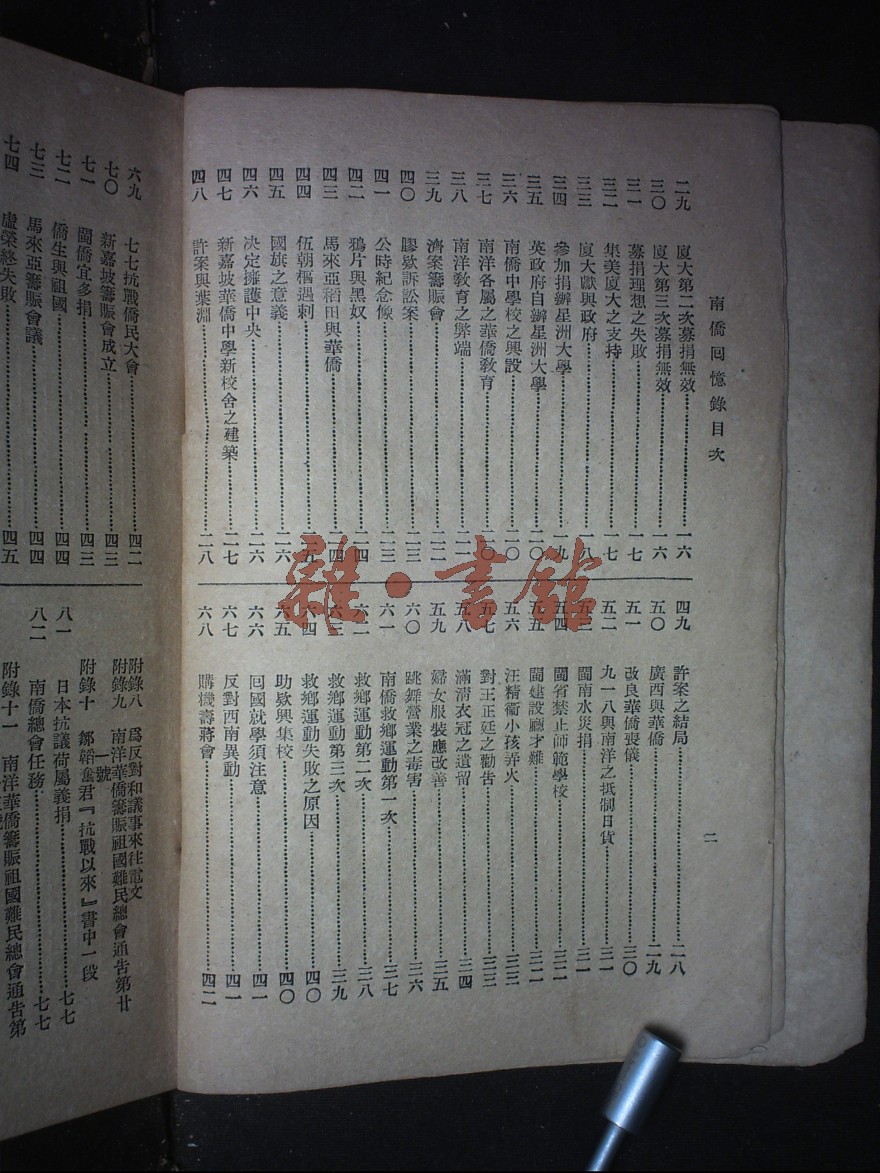 南僑回憶錄目次
二
二九 廈大第二次募捐無效 一六
三〇 廈大第三次募捐無效 一六
三一 募捐理想之失敗 一七
三二 集美廈大之支持 一七
三三 廈大獻與政府 一八
三四 參加捐辦星洲大學 一九
三五 英政府自辦星洲大學 二〇
三六 南僑中學校之興設 二〇
三七 南洋各屬之華僑教育 二〇
三八 南洋教育之弊端 二一
三九 濟案籌賑會 二二
四〇 膠欵訴訟案 二三
四一 公時紀念像 二三
四二 鴉片與黑奴 二四
四三 馬來亞稻田與華僑 二四
四四 伍朝樞遇刺 二五
四五 國旗之意義 二六
四六 决定擁護中央 二六
四七 新嘉坡華僑中學新校舍之建築 二七
四八 許案與葉淵 二八
四九 許案之結局 二八
五〇 廣西與華僑 二九
五一 改良華僑喪儀 三〇
五二 九一八與南洋之抵制日貨 三一
五三 閩南水災捐 三一
五四 閩省禁止師範學校 三二
五五 閩建設廳才難 三二
五六 汪精衞小孩弄火 三三
五七 對王正廷之勸告 三三
五八 滿清衣冠之遺留 三四
五九 婦女服裝應改善 三五
六〇 跳舞營業之毒害 三六
六一 南僑救鄉運動第一次 三七
六二 救鄉運動第二次 三八
六三 救鄉運動第三次 三九
六四 救鄉運動失敗之原因 四〇
六五 助欵興集校 四〇
六六 回國就學須注意 四一
六七 反對西南異動 四一
六八 購機壽蔣會 四二
雜·書館
六九 七七抗戰僑民大會 四二
七〇 新嘉坡籌賑會成立 四三
七一 閩僑宜多捐 四三
七二 僑生與祖國 四四
七三 馬來亞籌賑會議 四四
七四 虛榮終失敗 四五
附錄八 爲反對和議事來往電文
附錄九 南洋華僑籌賑祖國難民總會通告第廿
一號
附錄十 鄒韜奮君『抗戰以來』書中一段
八一 日本抗議荷屬義捐 七七
八二 南僑總會任務 七七
附錄十一 南洋華僑籌賑祖國難民總會通告第